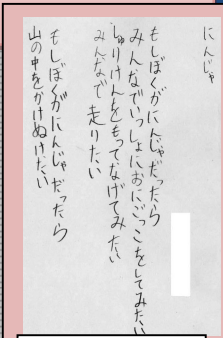 にんじゃ
もしぼくがにんじゃだったら
みんなでいっしょにおにごっこをしてみたい
しゅりけんをもってなげてみたい
みんなで走りたい
もしぼくがにんじゃだったら
山の中をかけぬけたい